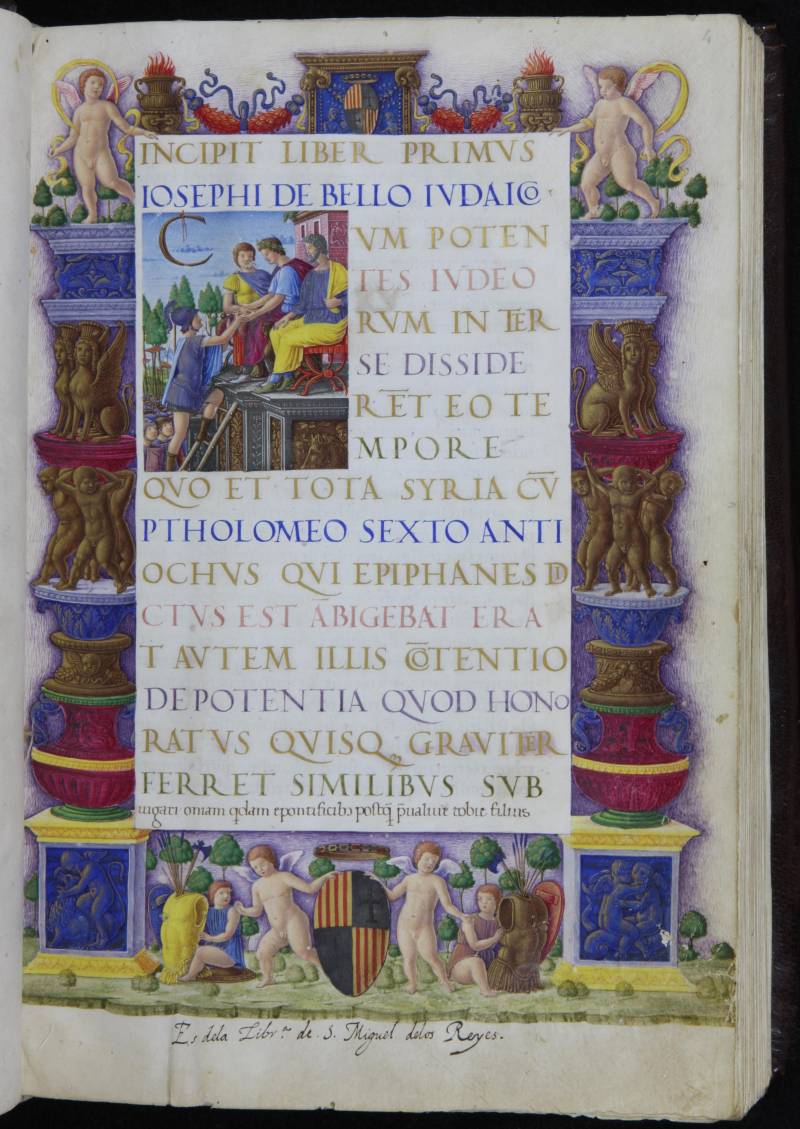 4
INCIPIT LIBER PRIMVS
IOSEPHI DE BELLO IVDAICO
C
VM POTEN
TES IVDEO
RVM INTER
SE DISSIDE
RE̅T EO TE
MPORE
QVO ET TOTA SYRIA CV̅
PTHOLOMEO SEXTO ANTI
OCHVS QVI EPIPHANES DI
CTVS EST A̅BIGEBAT ERA
T AVTEM ILLIS CO̅TENTIO
DE POTENTIA QVOD HONO
RATVS QVISQ, GRAVITER
FERRET SIMILIBVS SVB
iugari oniam qdam epontificibs postq̅ p̅ualuit tobie filius
Es dela Libr.ª de S. Miguel delos Reyes.